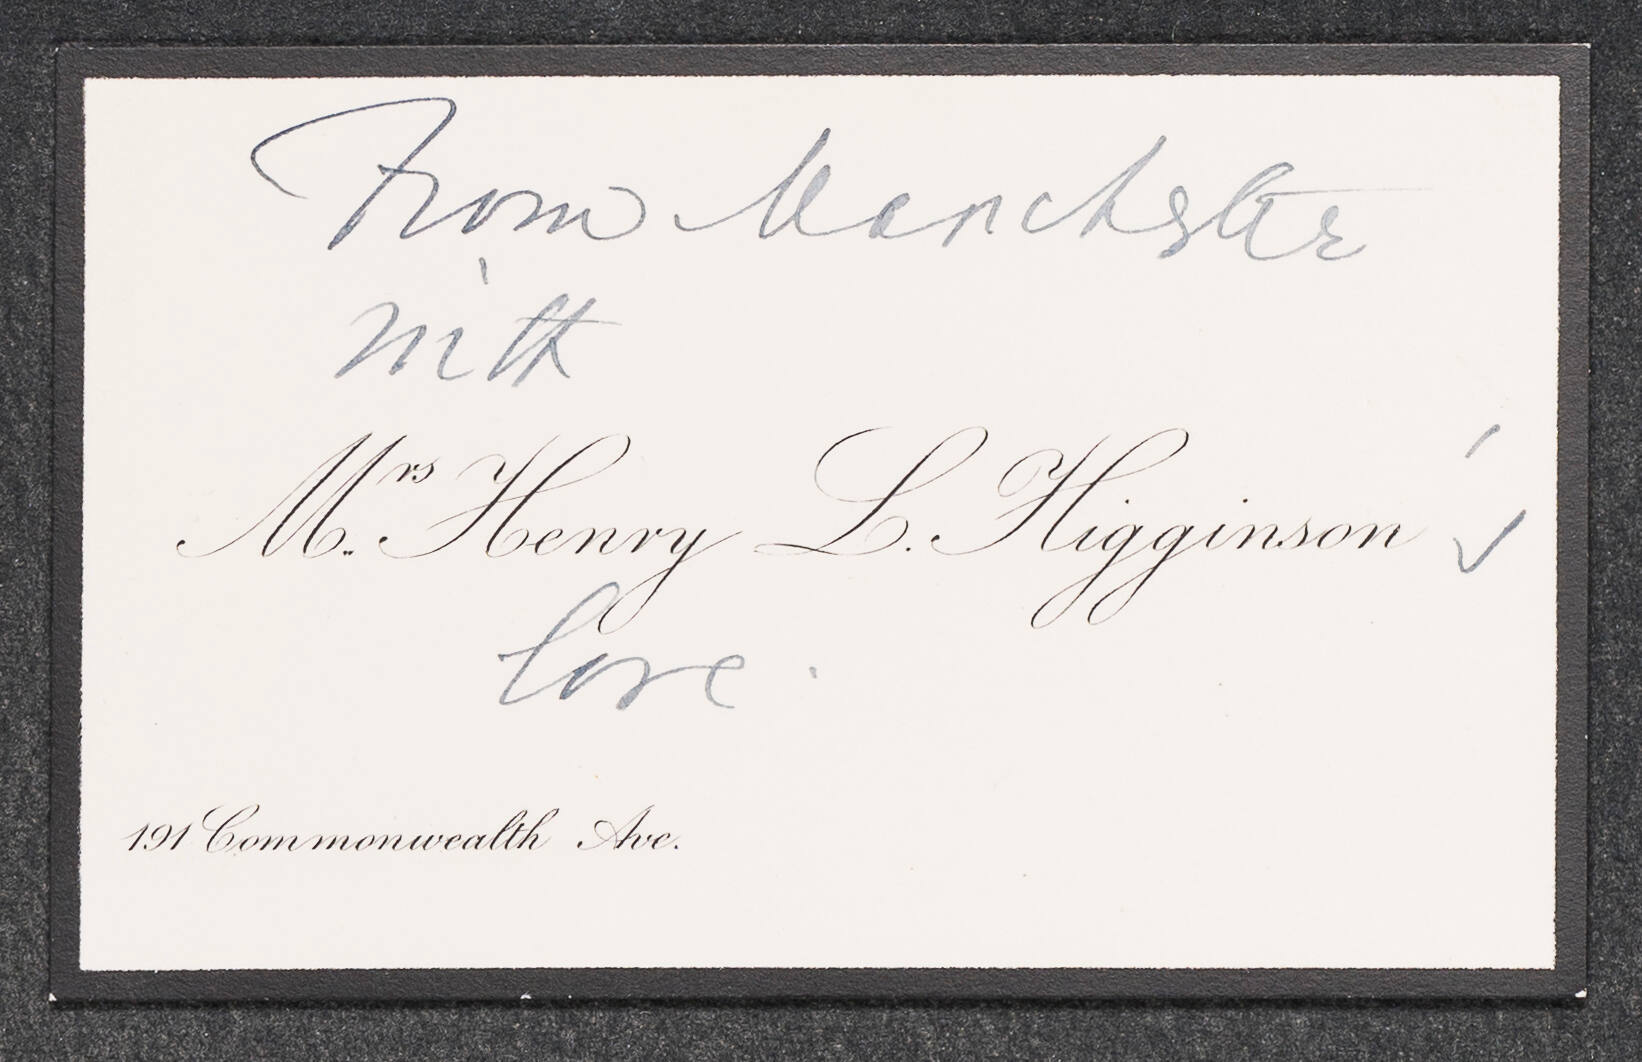 From Manchester
with
Mrs. Henry L. Higginson's
love.
191 Commonwealth Ave.